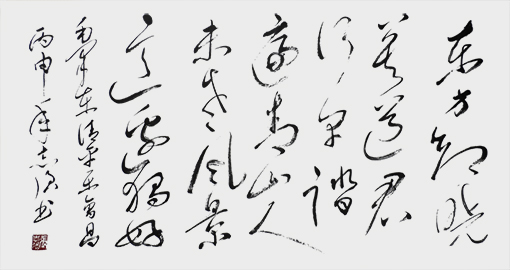 东方欲晓
莫道君
行早踏
遍青山人
未老风景
这边独好
毛泽东清平乐會昌
丙申年志书